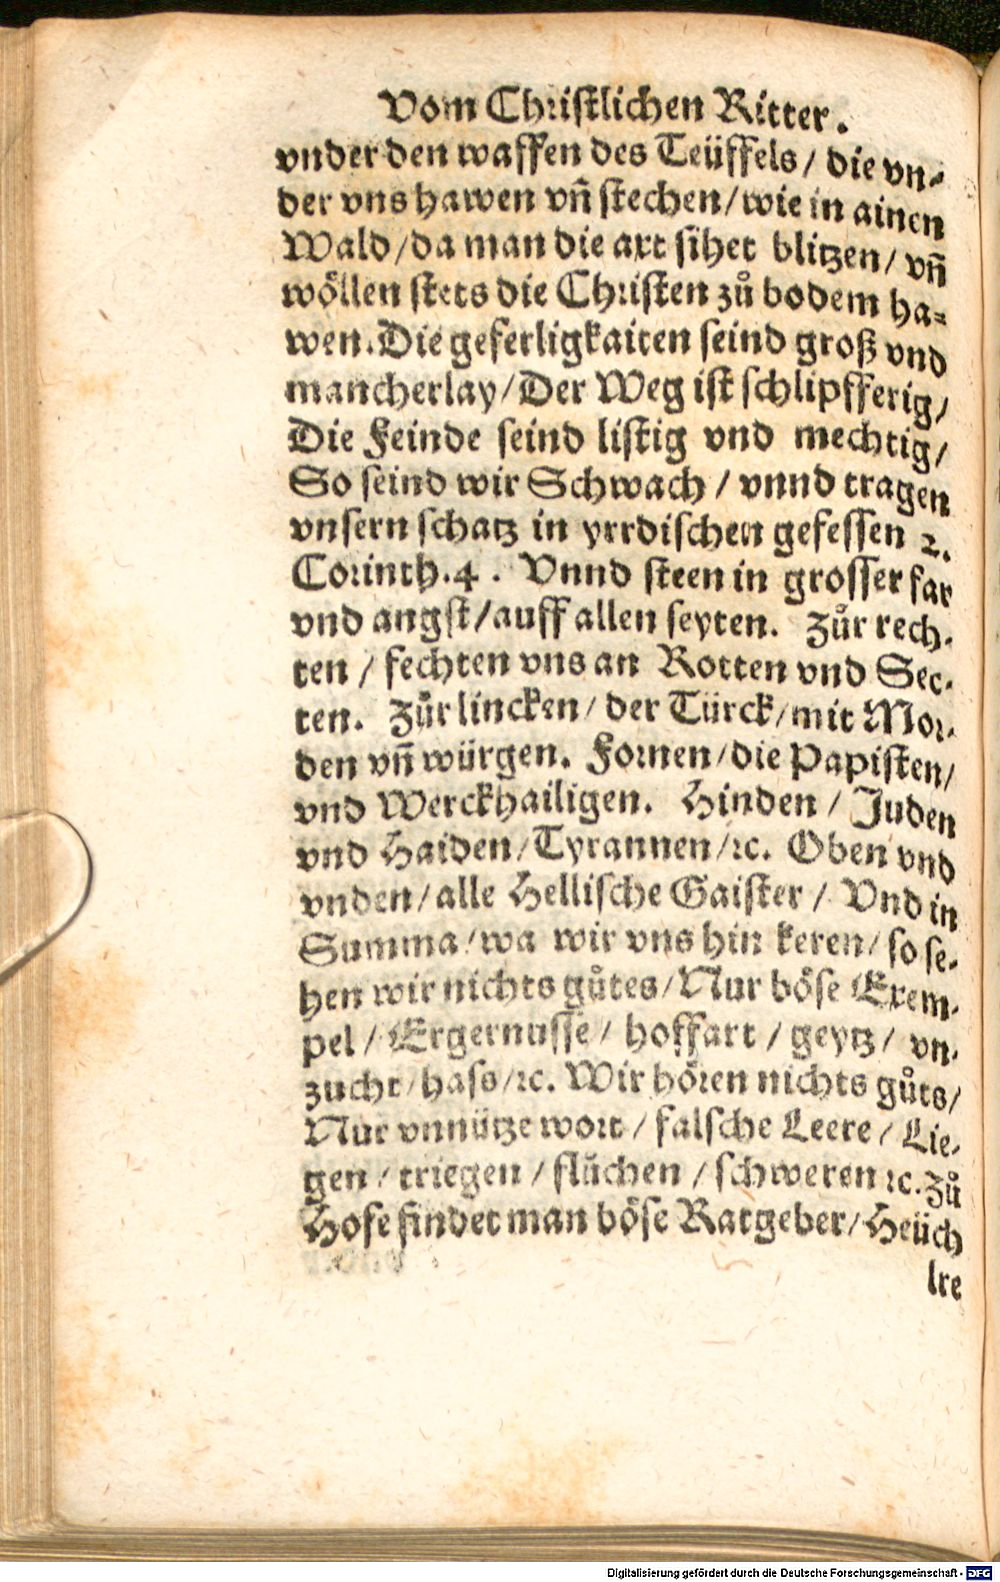 Vom Christlichen Ritter.
vnder den waffen des Teüffels / die vn⸗
der vns hawen vñ stechen / wie in ainen
Wald / da man die axt sihet blitzen / vñ
wöllen stets die Christen zů bodem ha⸗
wen. Die geferligkaiten seind groß vnd
mancherlay / Der Weg ist schlipfferig /
Die Feinde seind listig vnd mechtig /
So seind wir Schwach / vnnd tragen
vnsern schatz in yrrdischen gefessen 2.
Corinth. 4. Vnnd steen in grosser far
vnd angst / auff allen seyten. Zůr rech⸗
ten / fechten vns an Rotten vnd Sec⸗
ten. Zůr lincken / der Türck / mit Mor⸗
den vñ würgen. Fornen / die Papisten /
vnd Werckhailigen. Hinden / Juden
vnd Haiden / Tyrannen / ꝛc. Oben vnd
vnden / alle Hellische Gaister / Vnd in
Summa / wa wir vns hin keren / so se⸗
hen wir nichts gůtes / Nur böse Exem⸗
pel / Ergernusse / hoffart / geytz / vn⸗
zucht / hass / ꝛc. Wir hören nichts gůts /
Nur vnnütze wort / falsche Leere / Lie⸗
gen / triegen / flůchen / schweren ꝛc. Zů
Hofe findet man böse Ratgeber / Heüch
lre
Digitalisierung gefördert durch die Deutsche Forschungsgemeinschaft - DFG